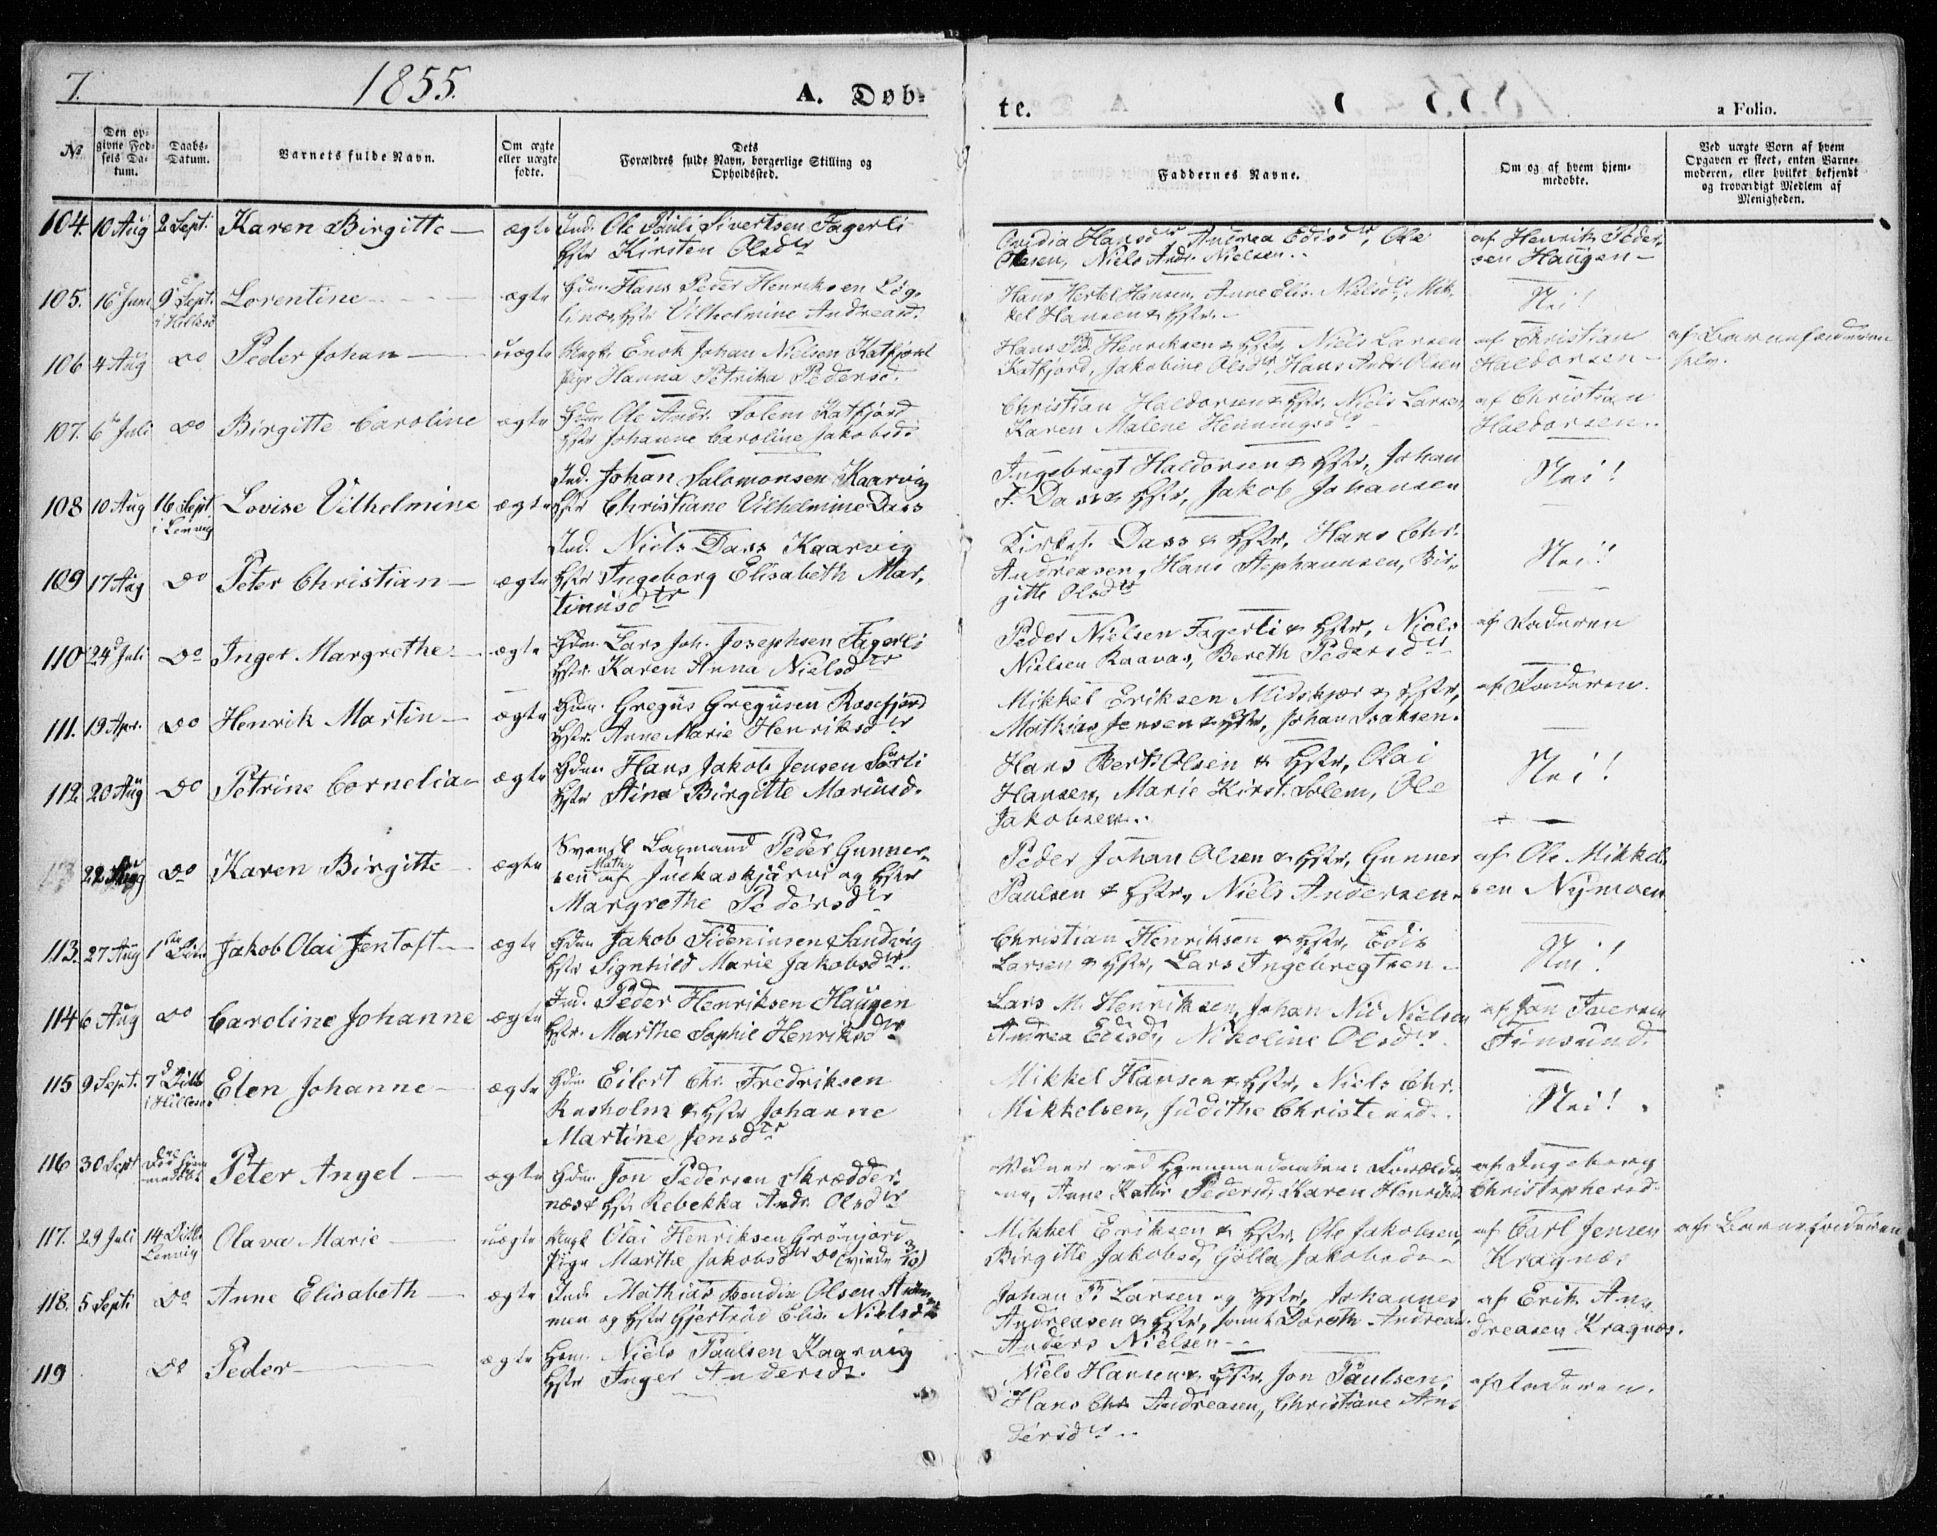 7.
1855.
A. Døb-
te.
a Folio.
No
Den op-
givne Fød-
sels Da-
tum.
Daabs-
Datum.
Barnets fulde Navn.
Om ægte
eller uægte
fødte.
Dets
Forældres fulde Navn, borgerlige Stilling og
Opholdssted.
Faddernes Navne.
Om og af hvem hjem-
medøbte.
Ved uægte Børn af hvem
Opgaven er skeet, enten Barne-
moderen, eller hvilket bekjendt
og troværdigt Medlem af
Menigheden.
104. 10 Aug 2 Sept. Karen Birgitte ægte Ind. Ole Pauli Sivertsen Fagerli
Hstr Kirsten Olsdr
Ovidia Hansdr, Andrea Edisdr, Ole
Olesen, Niels Andr. Nielsen.
af Henrik Peder-
sen Haugen
105. 16 Juni 9 Sept. i Hillesø Lorentine ægte Gdm. Hans Peder Henriksen
Hstr Vilhelmine Andreasd.
Hans Hertel Hansen, Anne Elis. Nielsdr, Mik-
kel Hansen & Hstr.
Nei!
106 4 Aug do Peder Johan uægte Ungk. Enok Johan Nielsen Katfjord
Pige Hanna Petrika Pedersd.
Hans Ped. Henriksen & Hstr, Niels Larsen
Katfjord, Jakobine Olsdr, Hans Andr. Olsen
af Christian
Haldorsen
af Barnefaderen
selv.
107. 6 Juli do Birgitte Caroline ægte Gdm. Ole Andr. Solem Katfjord
Hstr Johanne Caroline Jakobsd.
Christian Haldorsen & Hstr, Niels Larsen,
Karen Malene Henningsdr
af Christian
Haldorsen.
108 10 Aug 16 Sept. i Lenvig Lovise Vilhelmine ægte Ind. Johan Salomonsen Kaarvig
Hstr Christiane Vilhelmine Dass
Ingebregt Haldorsen & Hstr, Johan
F. Dass & Hstr, Jakob Johansen
Nei!
109 17 Aug do Peter Christian ægte Ind. Niels Dass Kaarvig
Hstr Ingeborg Elisabeth Mar-
tinusdtr
Kirkes. Dass & Hstr, Hans Chr.
Andreasen, Hans Stephannsen, Bir-
gitte Olsdtr
Nei!
110 24 Juli do Inger Margrethe ægte Gdm. Lars Joh. Josephsen Fagerli
Hstr. Karen Anna Nielsdtr
Peder Nielsen Fagerli & Hstr, Niels
Nielsen Raavas, Bereth Pedersdtr
af Faderen
111. 19 Apr. do Henrik Martin ægte Gdm. Gregus Gregusen Rossfjord
Hstr. Anne Marie Henriksdtr
Mikkel Eriksen Midskjær & Hstr,
Mathias Jensen & Hstr, Johan Isaksen.
af Faderen.
112. 20 Aug do Petrine Cornelia ægte Gdm. Hans Jakob Jensen Sørli
Hstr Stina Birgitte Mariusd.
Hans Bert. Olsen & Hstr, Olai
Hansen, Marie Kirst. Solem, Ole
Jakobsen.
Nei!
22 Aug do Karen Birgitte ægte Svensk Lapmand Peder Gunner-
sen Math. af Juckaskjærvi og Hstr
Margrethe Pedersdtr
Peder Johan Olsen & Hstr, Gunner
Paulsen & Hstr, Niels Andersen.
af Ole Mikkel-
sen Nymoen
113. 27 Aug Jakob Olai Jentoft ægte Gdm. Jakob Sideniusen Sandvig
Hstr Signhild Marie Jakobsdr.
Christian Henriksen & Hstr, Edis
Larsen & Hstr, Lars Ingebregtsen
Nei!
114 6 Aug do Caroline Johanne ægte Ind. Peder Henriksen Haugen
Hstr. Marthe Sophie Henriksdtr
Lars M. Henriksen, Johan Nic Nielsen
Andrea Edisd., Nikoline Olsdtr
af Jon Iversen
Finsund.
115 9 Sept. 7 i Hillesø Elen Johanne ægte Gdm. Eilert Chr. Fredriksen
Rusholm & Hstr Johanne
Martine Jensdtr
Mikkel Hansen & Hstr, Niels Chr.
Mikkelsen, Judithe Christensd.
Nei!
116 30 Sept Peter Angel ægte Gdm. Jon Pedersen Skrædder-
næs & Hstr. Rebekka Andr. Olsdtr
Vidner ved Hjemmedaaben: Forældre-
ne, Anne Kathr. Pedersd., Karen Henriksd.
af Ingeborg
Christophersd.
117. 29 Juli 14 Lenvig Olava Marie uægte Ungk. Olai Henriksen Grønjord
Pige Marthe Jakobsdtr do
Mikkel Eriksen & Hstr, Ole Jakobsen,
Birgitte Jakobsd, Gølla Jakobsd.
af Carl Jensen
Kragnæs
af Barnefaderen
118. 5 Septr do Anne Elisabeth ægte Ind. Mathias Bendix Olsen
men og Hstr Gjertrud Elis. Nielsdtr
Johan P. Larsen og Hstr, Johannes
Andreasen & Hstr, samt Doroth. Andreasd.
Anders Nielsen
af Erik An-
dreasen Kragnæs.
119 do Peder ægte Gdm. Niels Paulsen Kaarvig
Hstr Inger Andersd.
Niels Hansen & Hstr, Jon Paulsen,
Hans Chr. Andreasen, Christiane An-
dersdr
af Faderen.